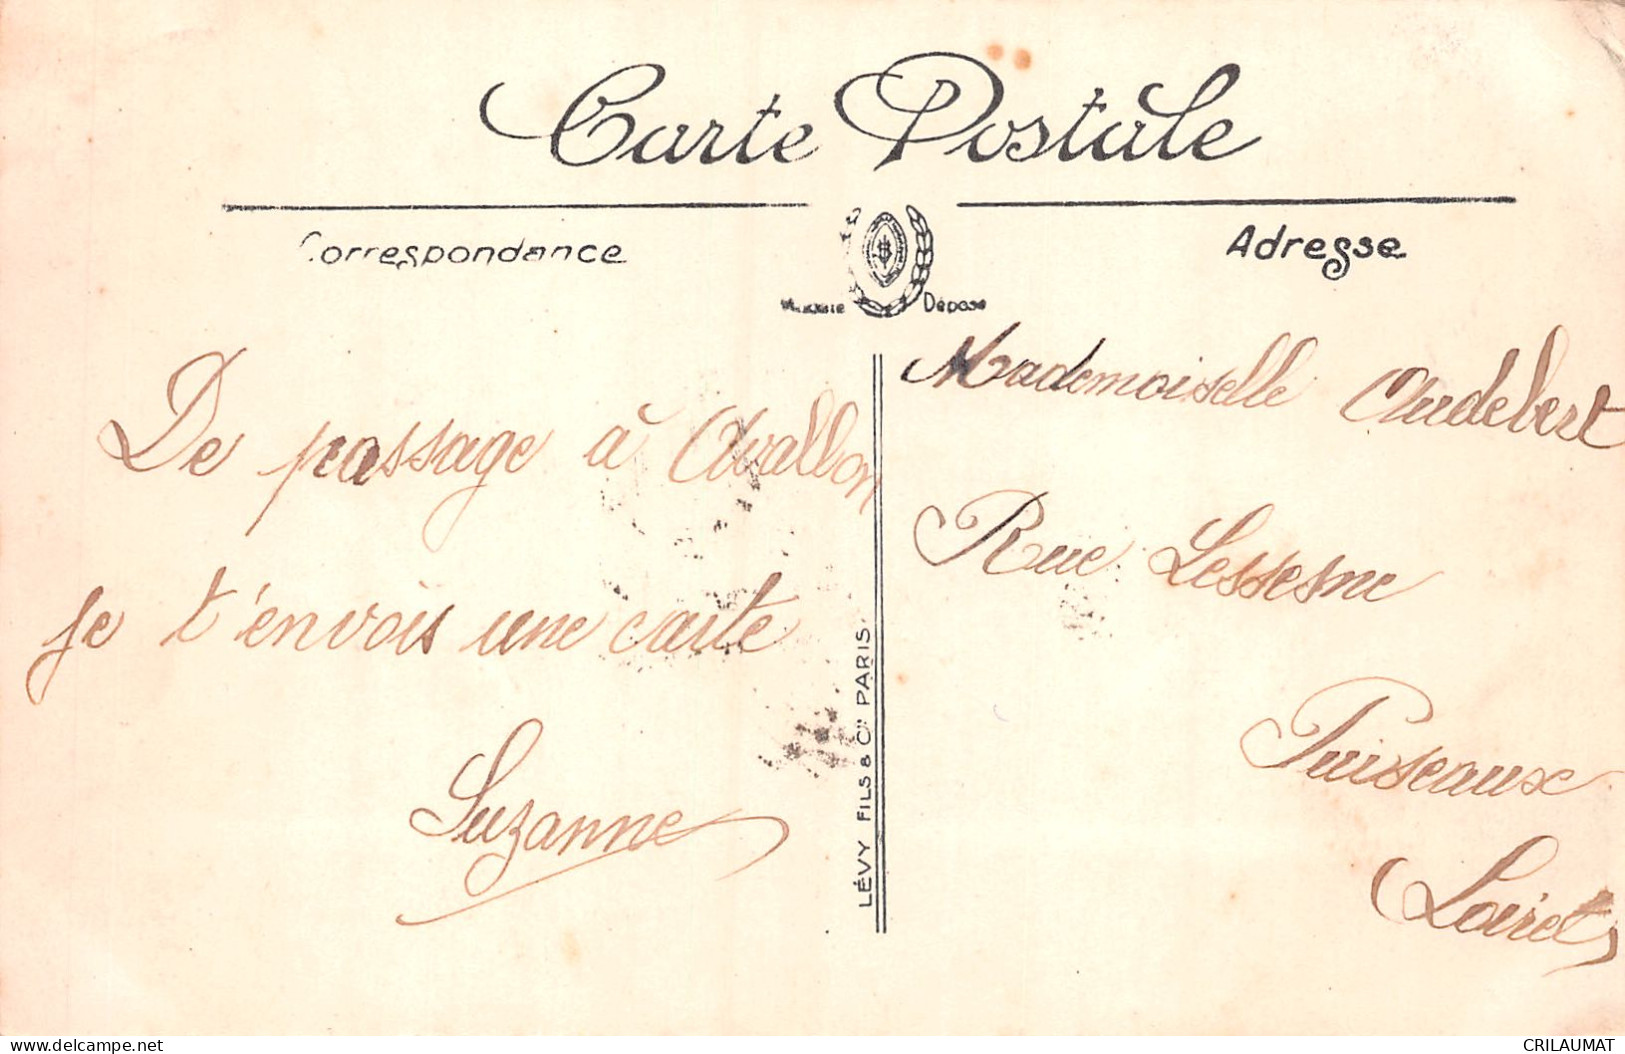 Carte Postale
Correspondance
Adresse
Déposé
De passage à Avallon
je t'envois une carte
Suzanne
LÉVY FILS & Cie PARIS
Mademoiselle Audebert
Rue Lessesne
Puiseaux
Loiret
www.delcampe.net
CRILAUMAT